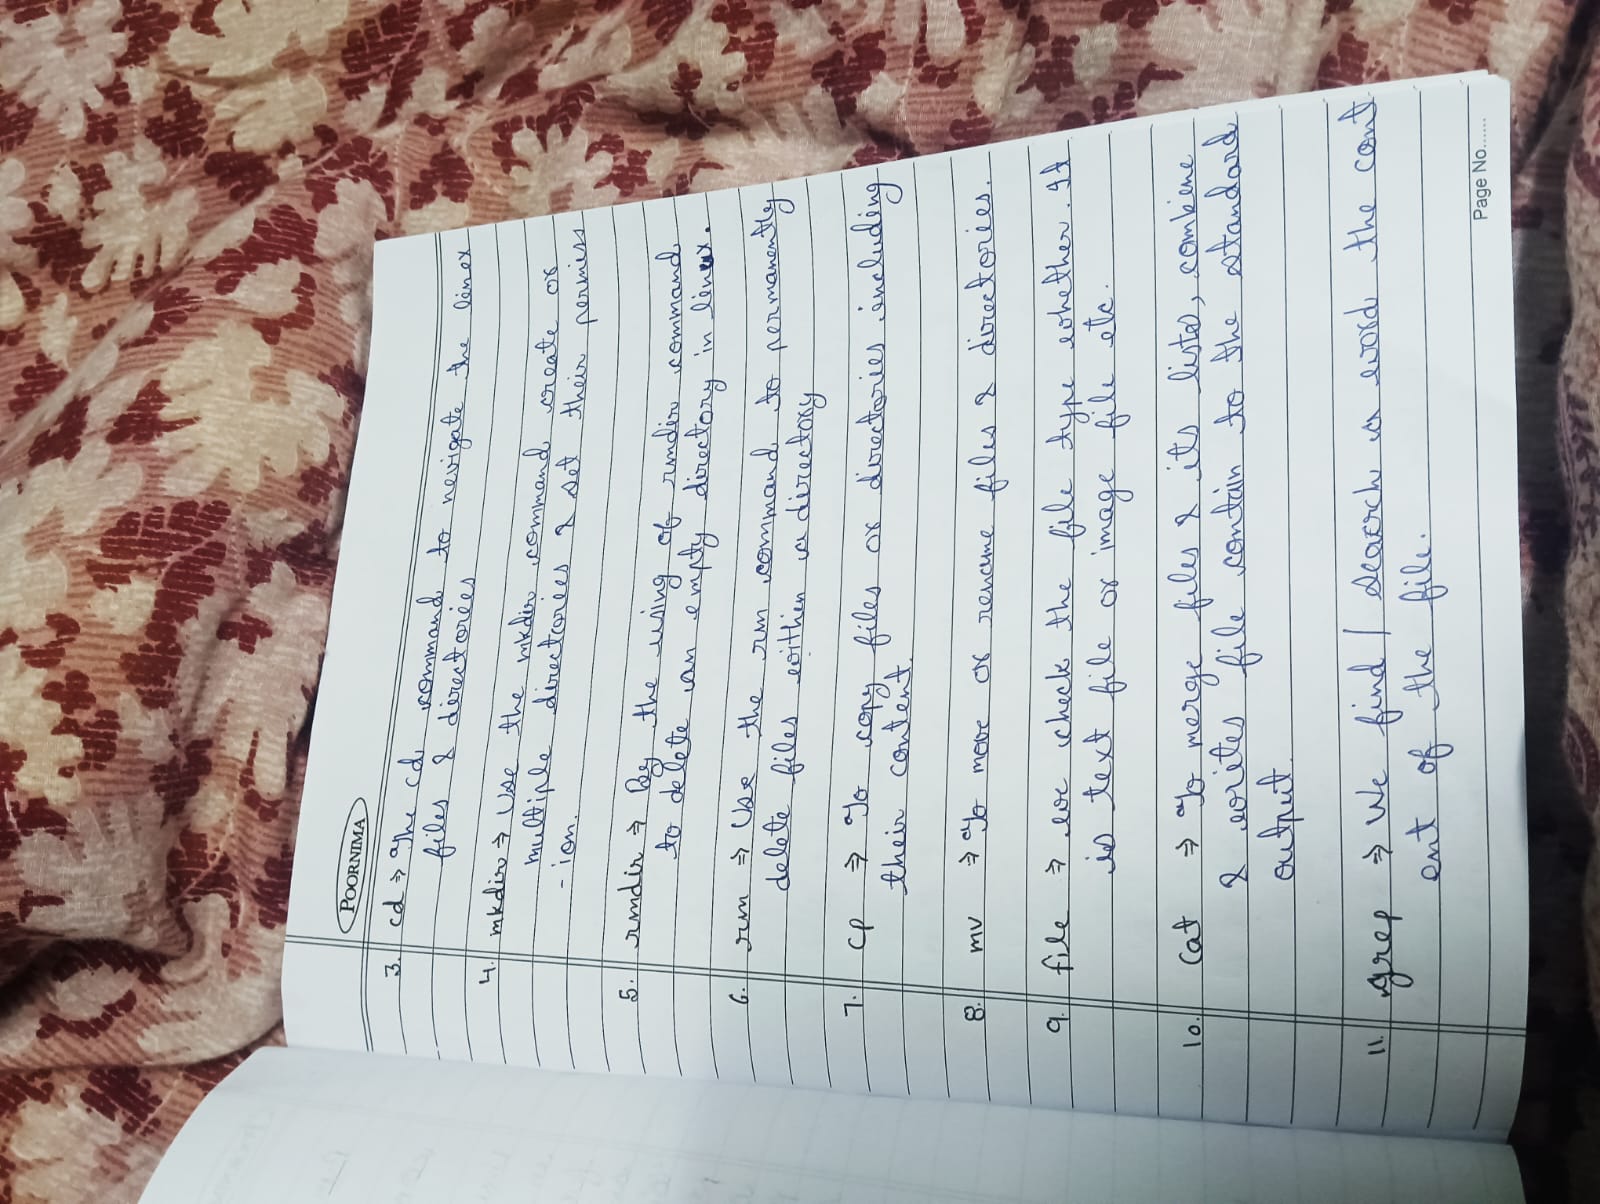 POORNIMA
3. cd ⇒ The cd command to nevigate the linex
files & directories
4. mkdir ⇒ Use the mkdir command create or
multiple directories & set their permiss
-ion.
5. rmdir ⇒ By the using of rmdir command
to delete an empty directory in linux.
6. rm ⇒ Use the rm command to permanently
delete files within a directory
7. cp ⇒ To copy files or directories including
their content.
8. mv ⇒ To move or rename files & directories.
9. file ⇒ we check the file type whether. It
is text file or image file etc.
10. Cat ⇒ To merge files & its lists, combine
& writes file contain to the standard
output.
11. grep ⇒ We find / search a word the cont
ent of the file.
Page No......